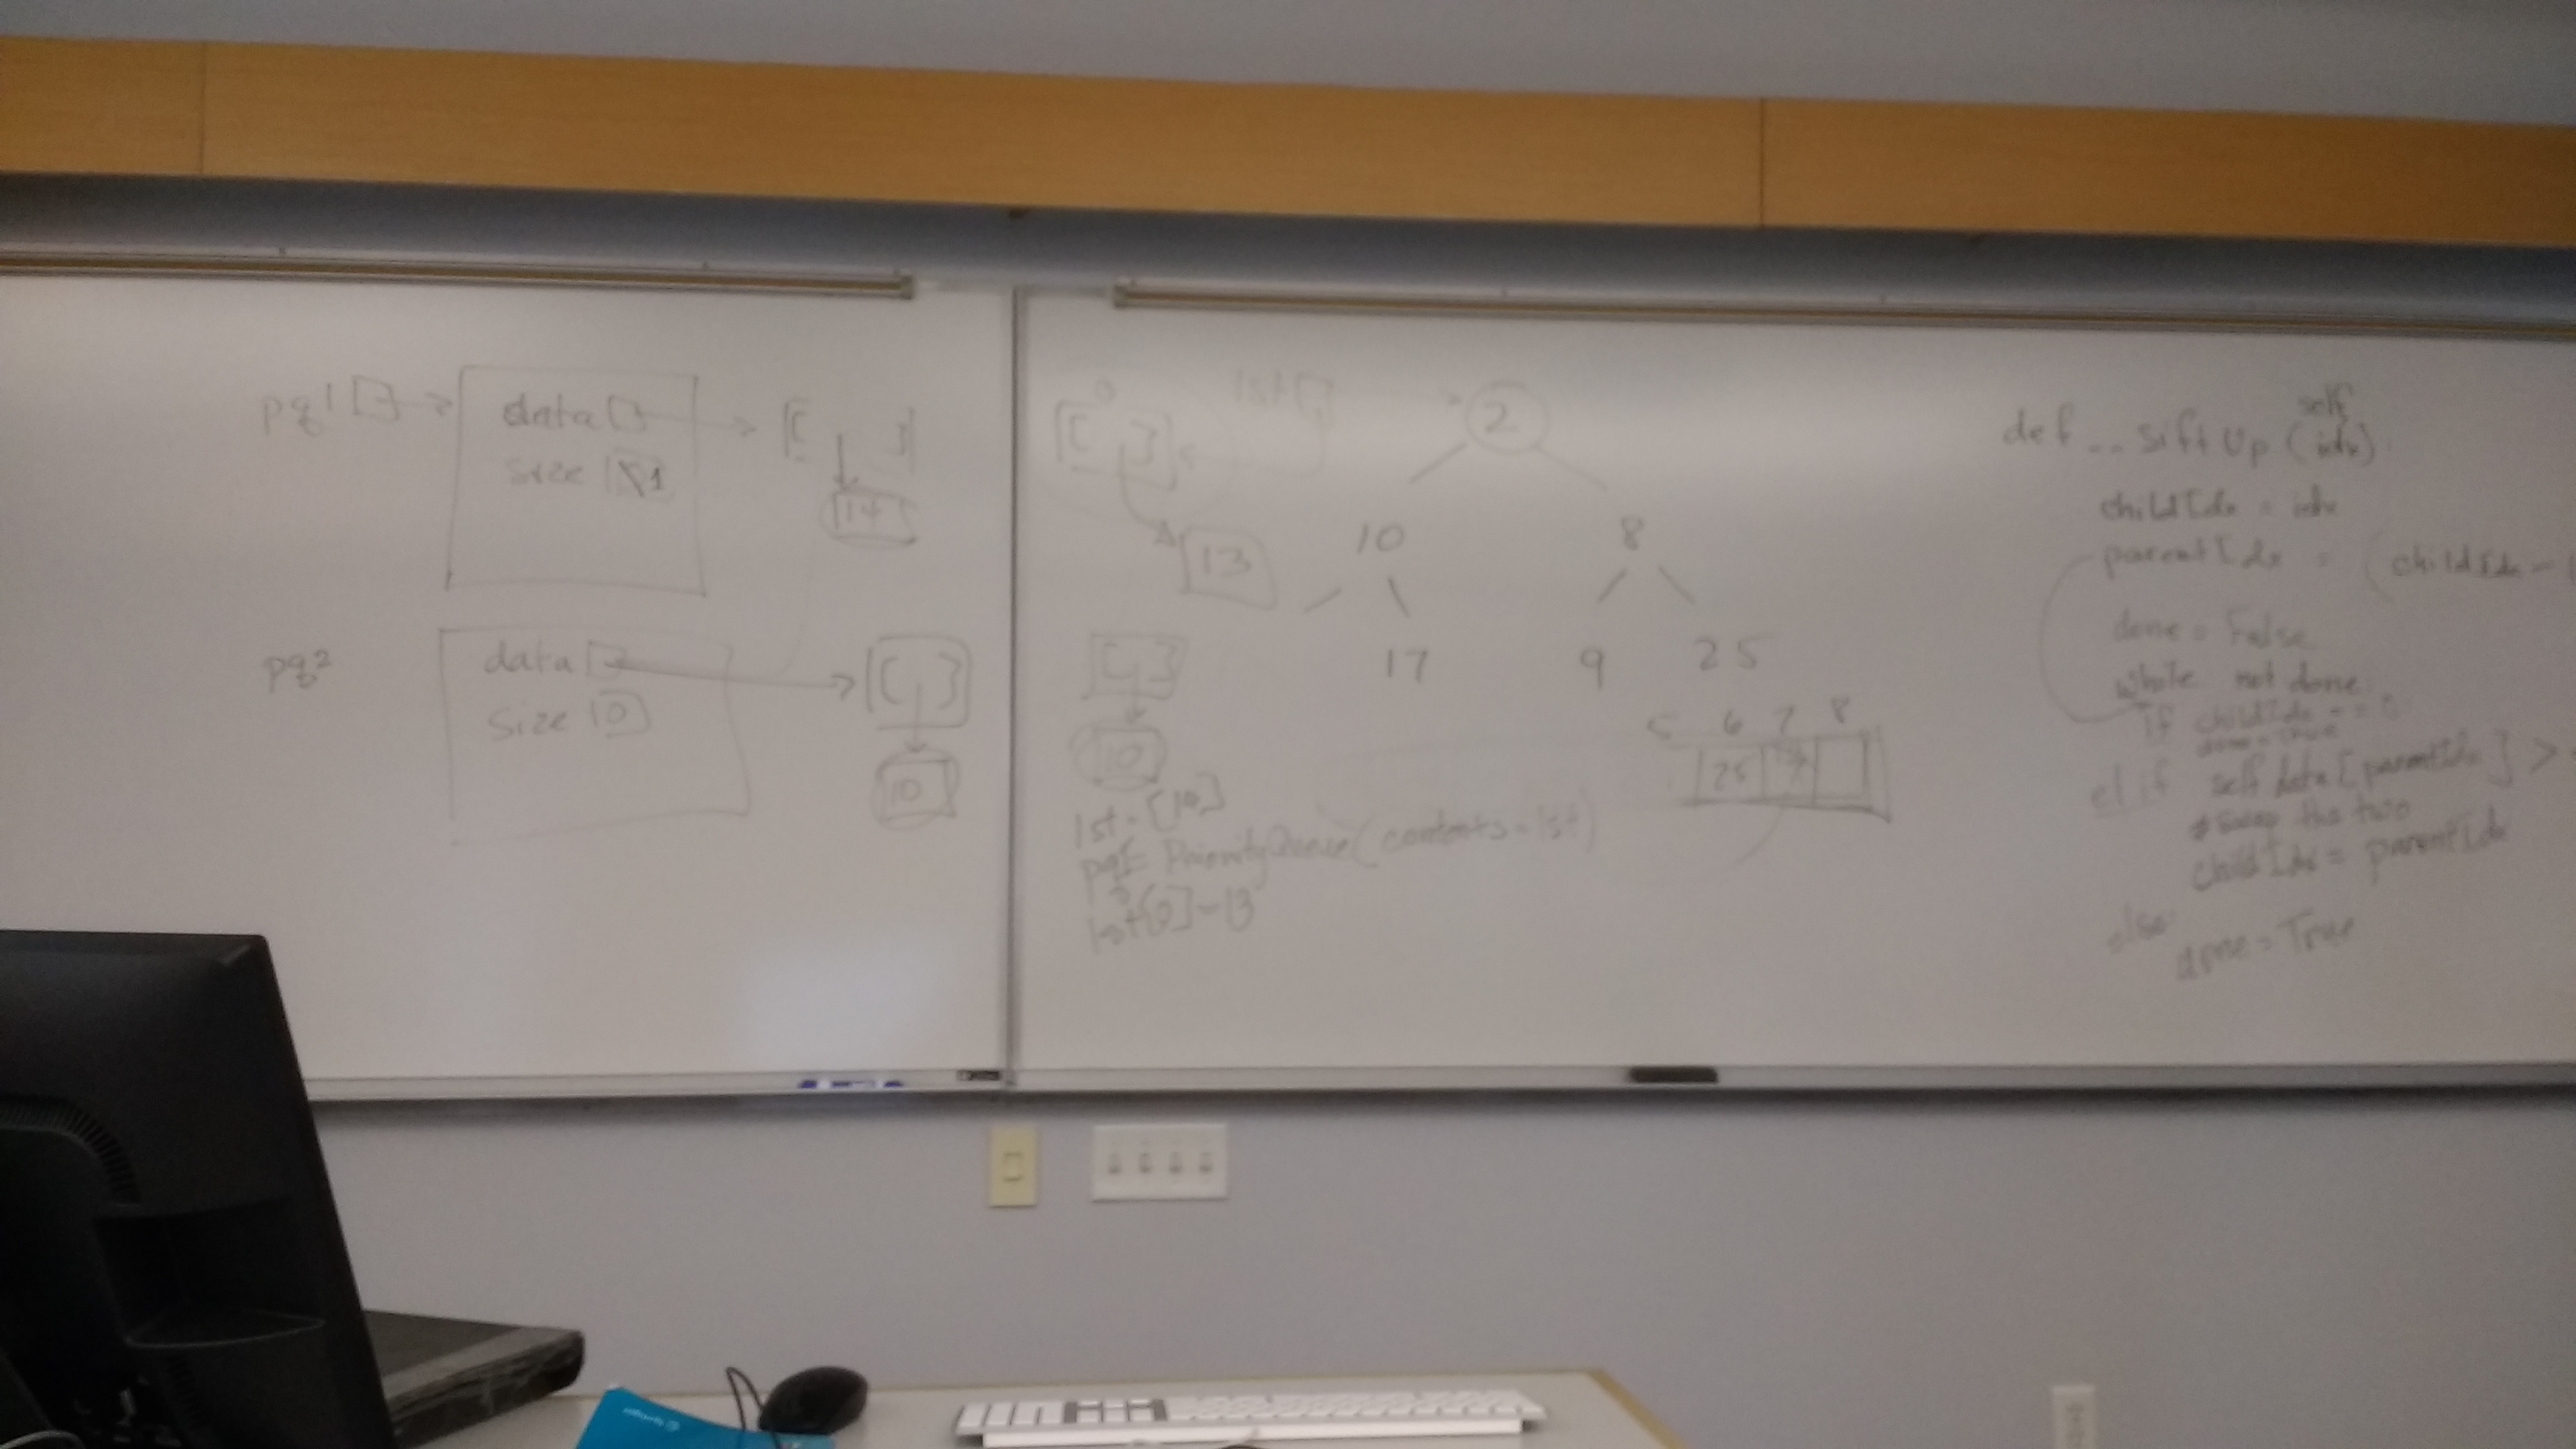 pq1
data
size 1
14
pq2
data
size 0
10
0
lst
13
10
lst = [10]
PriorityQueue(contents = lst)
lst[0] = 13
2
10 8
17 9 25
5 6 7 8
25
def __siftUp(self
idx)
childIdx = idx
parentIdx = (childIdx -
done = False
while not done:
if childIdx == 0:
done = True
elif self.data[parentIdx] >
# swap the two
childIdx = parentIdx
else:
done = True